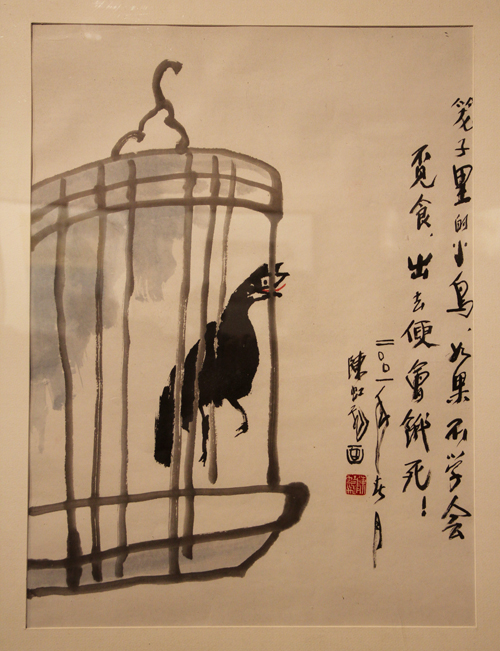 笼子里的小鸟，如果不学会
觅食，出去便會饿死！
二〇〇一年春月
陳虹画